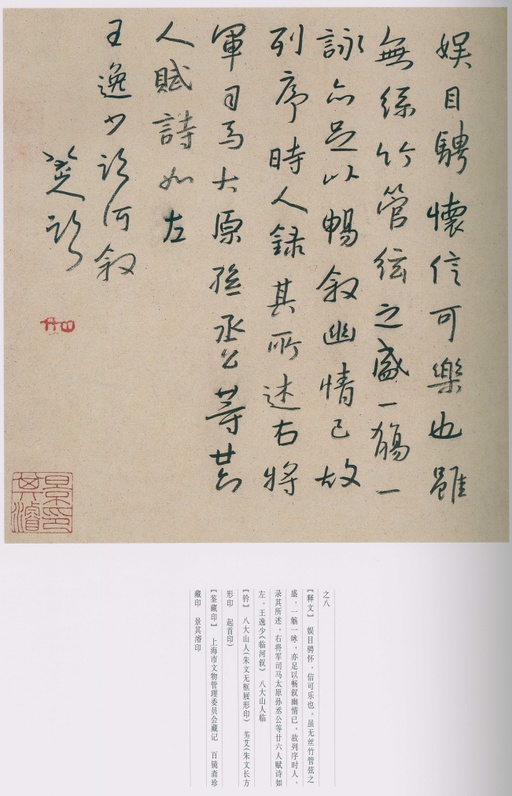 娱目騁懷信可樂也雖
無絲竹管絃之盛一觴一
詠亦足以暢叙幽情已故
列序時人録其所述右將
軍司馬太原孫丞公等廿六
人賦詩如左
王逸少臨河叙
八大山人臨
景其濬印
之八
【释文】 娱目骋怀,信可乐也,虽无丝竹管弦之
盛,一觞一咏,亦足以畅叙幽情已,故列序时人,
录其所述,右将军司马太原孙丞公等廿六人赋诗如
左。王逸少《临河叙》 八大山人临
【钤】 八大山人(朱文无框屐形印) 芴艾(朱文长方
形印 起首印)
【鉴藏印】 上海市文物管理委员会藏记 百镜斋珍
藏印 景其濬印